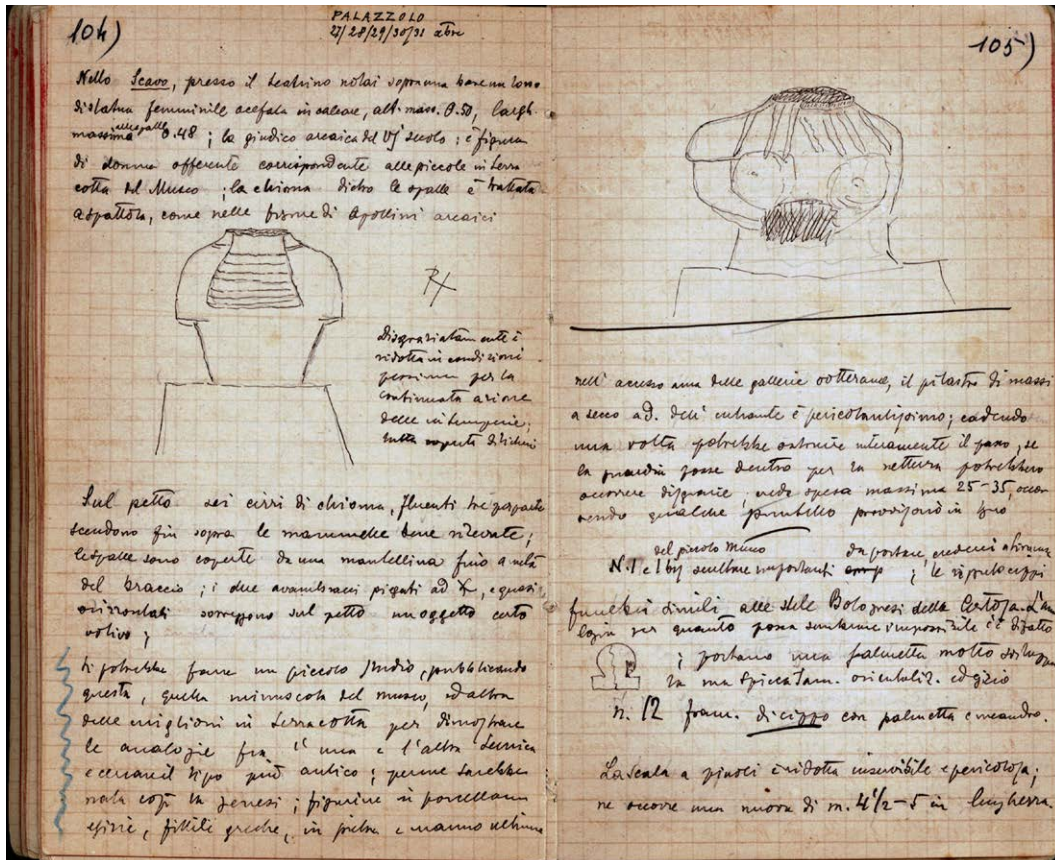 104)
PALAZZOLO
27/28/29/30/31 8bre
Nello Scavo, presso il teatrino notai sopra una base un torso
di statua femminile acefala in calcare, alt. mass. 0.50, largh.
massima alle spalle 0.48 ; la giudico arcaica del VI secolo ; è figura
di donna offerente corrispondente alle piccole in terra
cotta del Museo ; la chioma dietro le spalle è trattata
a spattola, come nelle figure di Apollini arcaici
Disgraziatamente è
ridotta in condizioni
pessime per la
continuata azione
delle intemperie;
tutta coperta di licheni
Sul petto sei cirri di chioma, fluenti tre per parte
scendono fin sopra le mammelle bene rilevate ;
le spalle sono coperte da una mantellina fino a metà
del braccio ; i due avambracci piegati ad X, e quasi
orizzontali sorreggono sul petto un oggetto certo
votivo ;
Si potrebbe fare un piccolo studio, pubblicando
questa, quella minuscola del museo, ed altra
delle migliori in terracotta per dimostrare
le analogie fra l'una e l'altra tecnica
e cercare il tipo più antico ; sarebbe
nata così la genesi ; figurine in porcellana
egizie, fittili greche, in pietra e marmo
105)
nell' accesso delle gallerie sotterranee, il pilastro di massi
a secco a d. dell' entrante è pericolantissimo ; cadendo
una volta potrebbe ostruire interamente il passo, se
la guardia fosse dentro per la nettezza potrebbero
occorrere disgrazie ; spesa massima 25-35, occor
rendo qualche puntello
del piccolo Museo
N. 1 e 1 bis sculture importanti da portare a Siracusa ; le
funebri simili alle stele Bolognesi della Certosa. L'ana
logia per quanto possa sembrare impossibile c'è difatto
; portano una palmetta molto
la sua orientaliz.
n. 12 fram. di cippo con palmetta e meandro.
La scala a pioli è ridotta inservibile e pericolosa ;
ne occorre una nuova di m. 4 1/2 - 5 in lunghezza